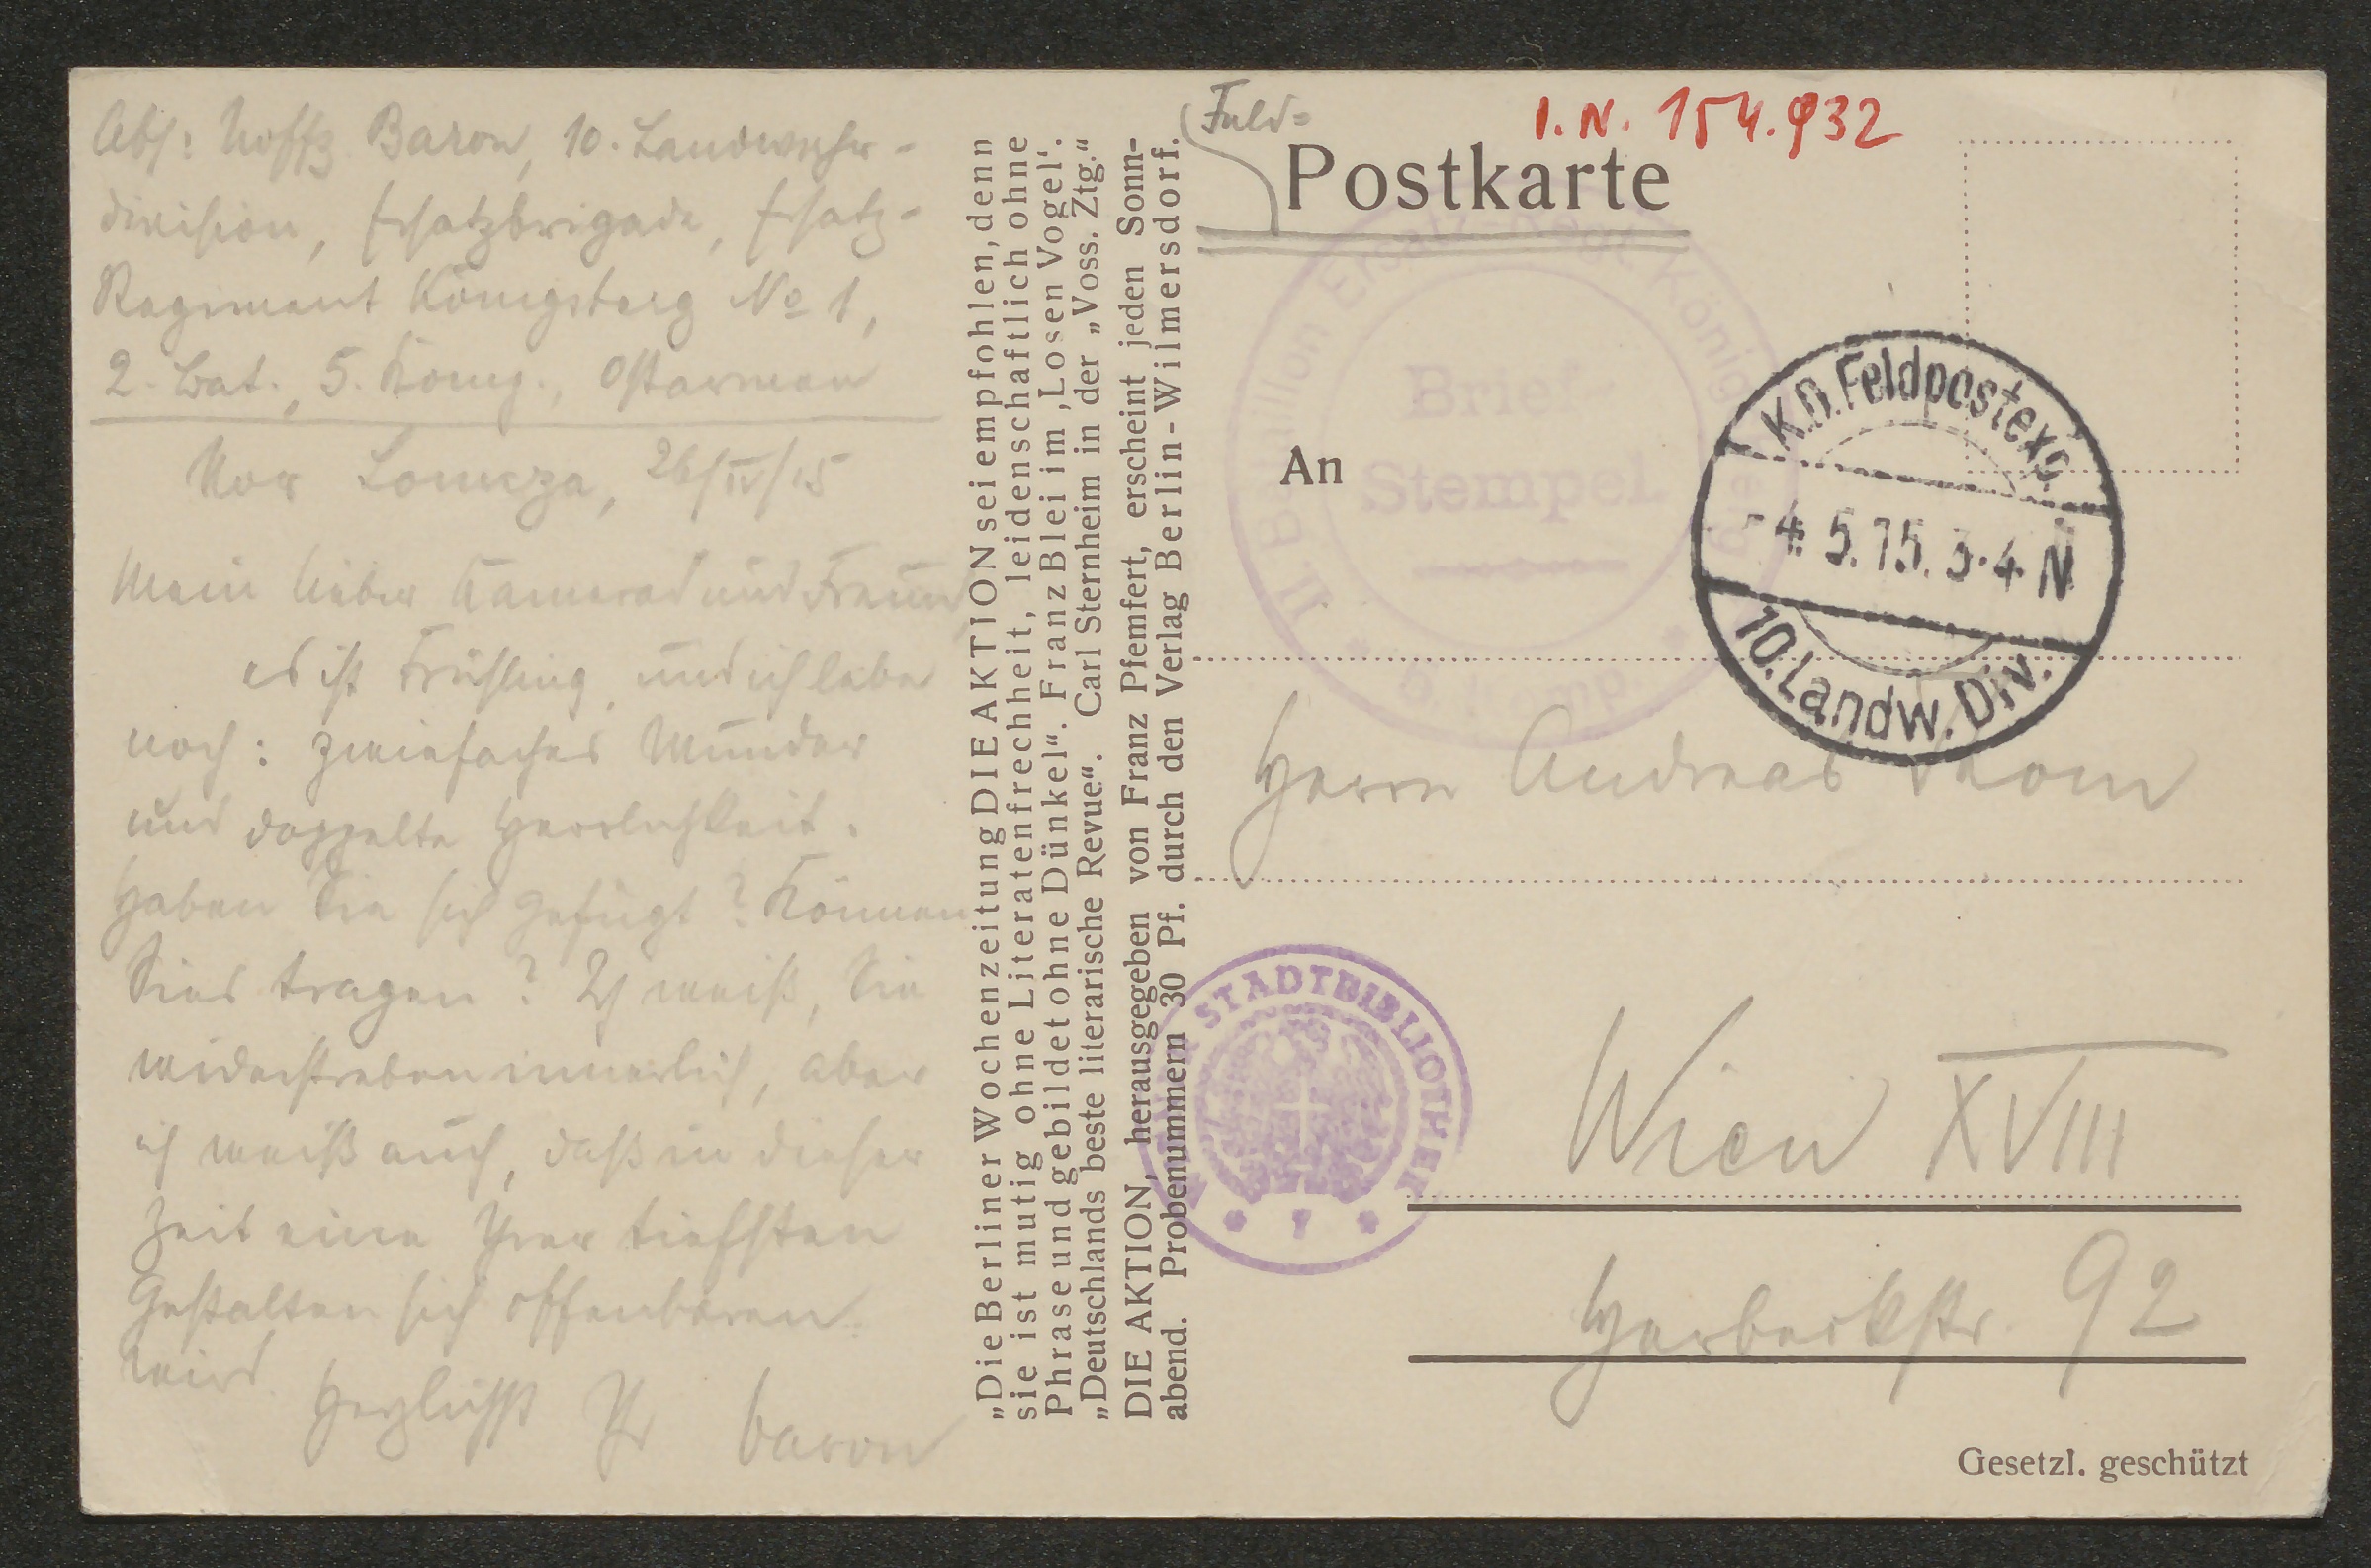 Abs: Uoffz Baron, 10. Landwehr-
division, Ersatzbrigade, Ersatz-
Regiment Königsberg No 1,
2. Bat., 5. Komp., Ostarmee
Vor Lomcza, 26/IV/15
Mein lieber Kamerad und Freund,
es ist Frühling, und ich lebe
noch: zwiefaches Wunder
und doppelte Herrlichkeit.
Haben Sie sich gefügt? Können
Sies tragen? Ich weiß, Sie
widerstreben innerlich, aber
ich weiß auch, daß in dieser
Zeit eine Ihrer tiefsten
Gestalten sich offenbaren
wird. Herzlichst Ihr Baron
„Die Berliner Wochenzeitung DIE AKTION sei empfohlen, denn
sie ist mutig ohne Literatenfrechheit, leidenschaftlich ohne
Phrase und gebildet ohne Dünkel“. Franz Blei im ‚Losen Vogel‘.
„Deutschlands beste literarische Revue.“ Carl Sternheim in der „Voss. Ztg.“
DIE AKTION, herausgegeben von Franz Pfemfert, erscheint jeden Sonn-
abend. Probenummern 30 Pf. durch den Verlag Berlin-Wilmersdorf.
Feld=
I.N. 154.932
Postkarte
II Bataillon Ersatz-Regt. Königsberg
Brief-
Stempel
Komp.
K.D. Feldpostexp.
- 4. 5. 15. 3-4 N
10. Landw. Div.
An
Herrn Andreas Thom
STADTBIBLIOTHEK
Wien XVIII
Herbeckstr. 92
Gesetzl. geschützt